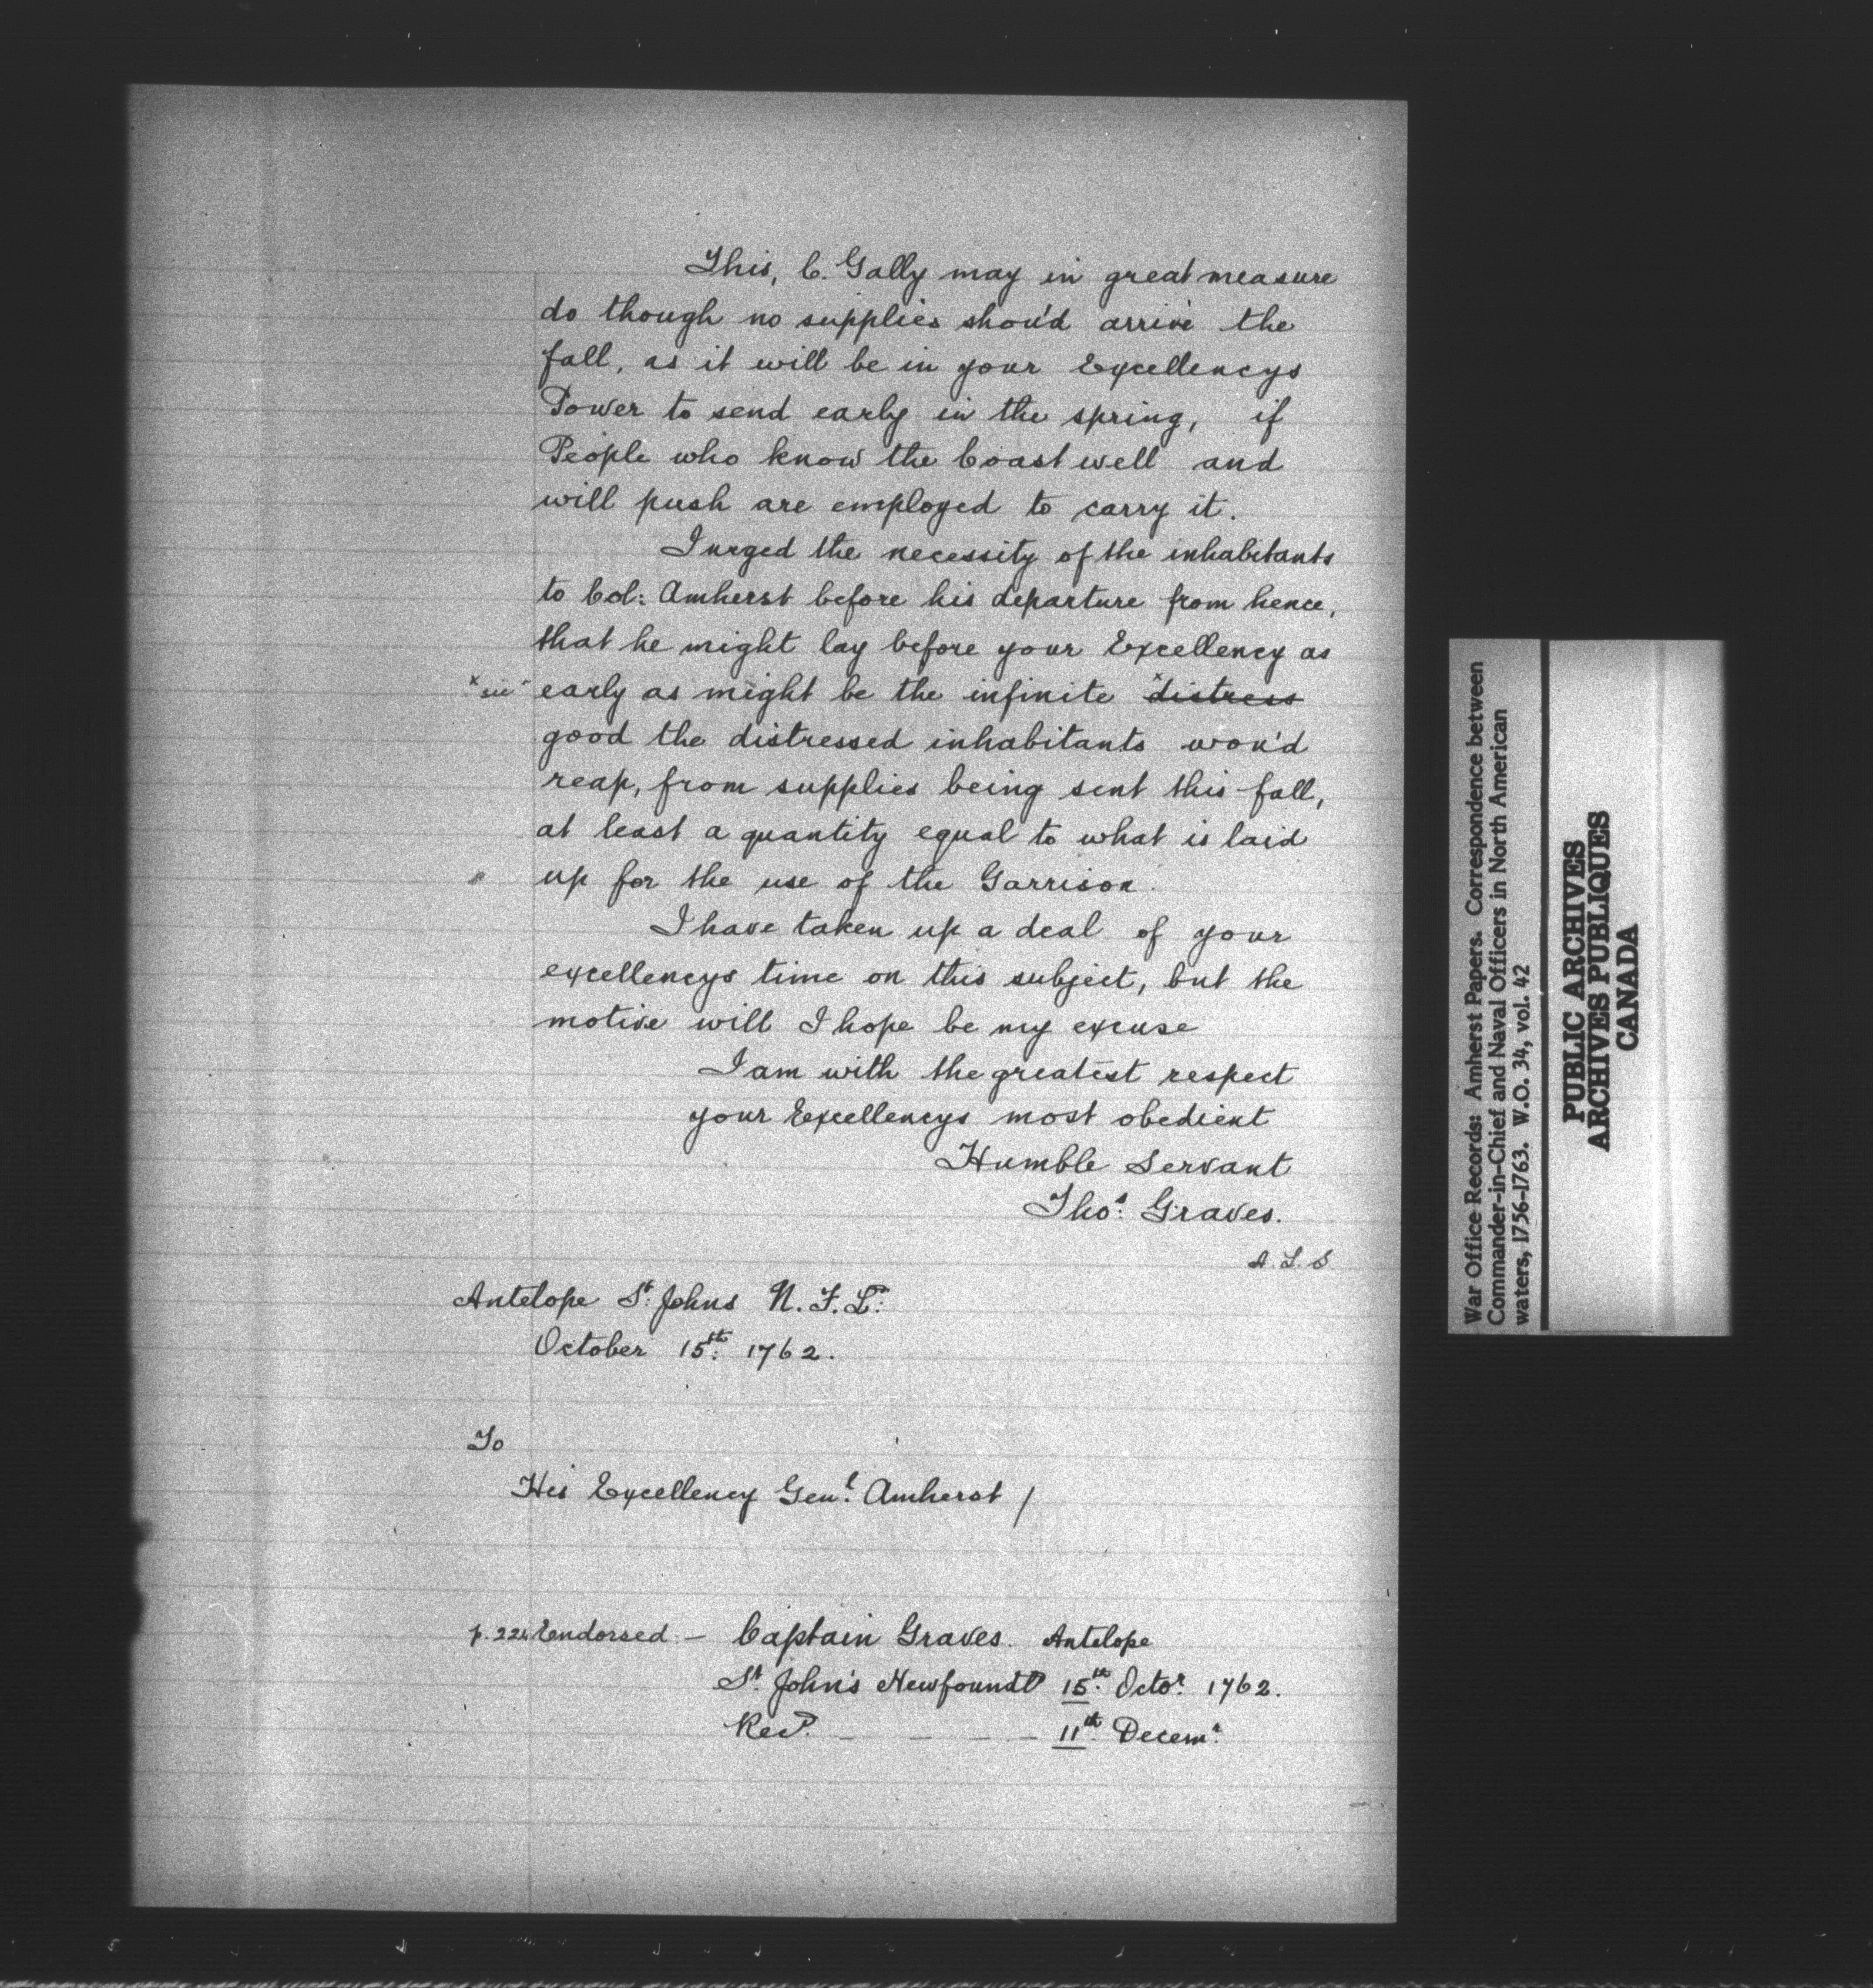 This, C. Gally may in great measure
do though no supplies shou'd arrive the
fall, as it will be in your Excellencys
Power to send early in the spring, if
People who know the Coast well and
will push are employed to carry it.
I urged the necessity of the inhabitants
to Col: Amherst before his departure from hence,
that he might lay before your Excellency as
x "sic" early as might be the infinite x distress
good the distressed inhabitants wou'd
reap, from supplies being sent this fall,
at least a quantity equal to what is laid
up for the use of the Garrison.
I have taken up a deal of your
excellencys time on this subject, but the
motive will I hope be my excuse
I am with the greatest respect
your Excellencys most obedient
Humble Servant
Thos: Graves.
A.L.S
Antelope St: Johns N.F.Ld:
October 15th: 1762.
To
His Excellency Genl: Amherst /
Endorsed – Captain Graves. Antelope
St. John's Newfoundd 15th: Octor: 1762.
Recd. – – – – 11th: Decemr:
War Office Records: Amherst Papers. Correspondence between
Commander-in-Chief and Naval Officers in North American
waters, 1756-1763. W.O. 34, vol. 42
PUBLIC ARCHIVES
ARCHIVES PUBLIQUES
CANADA